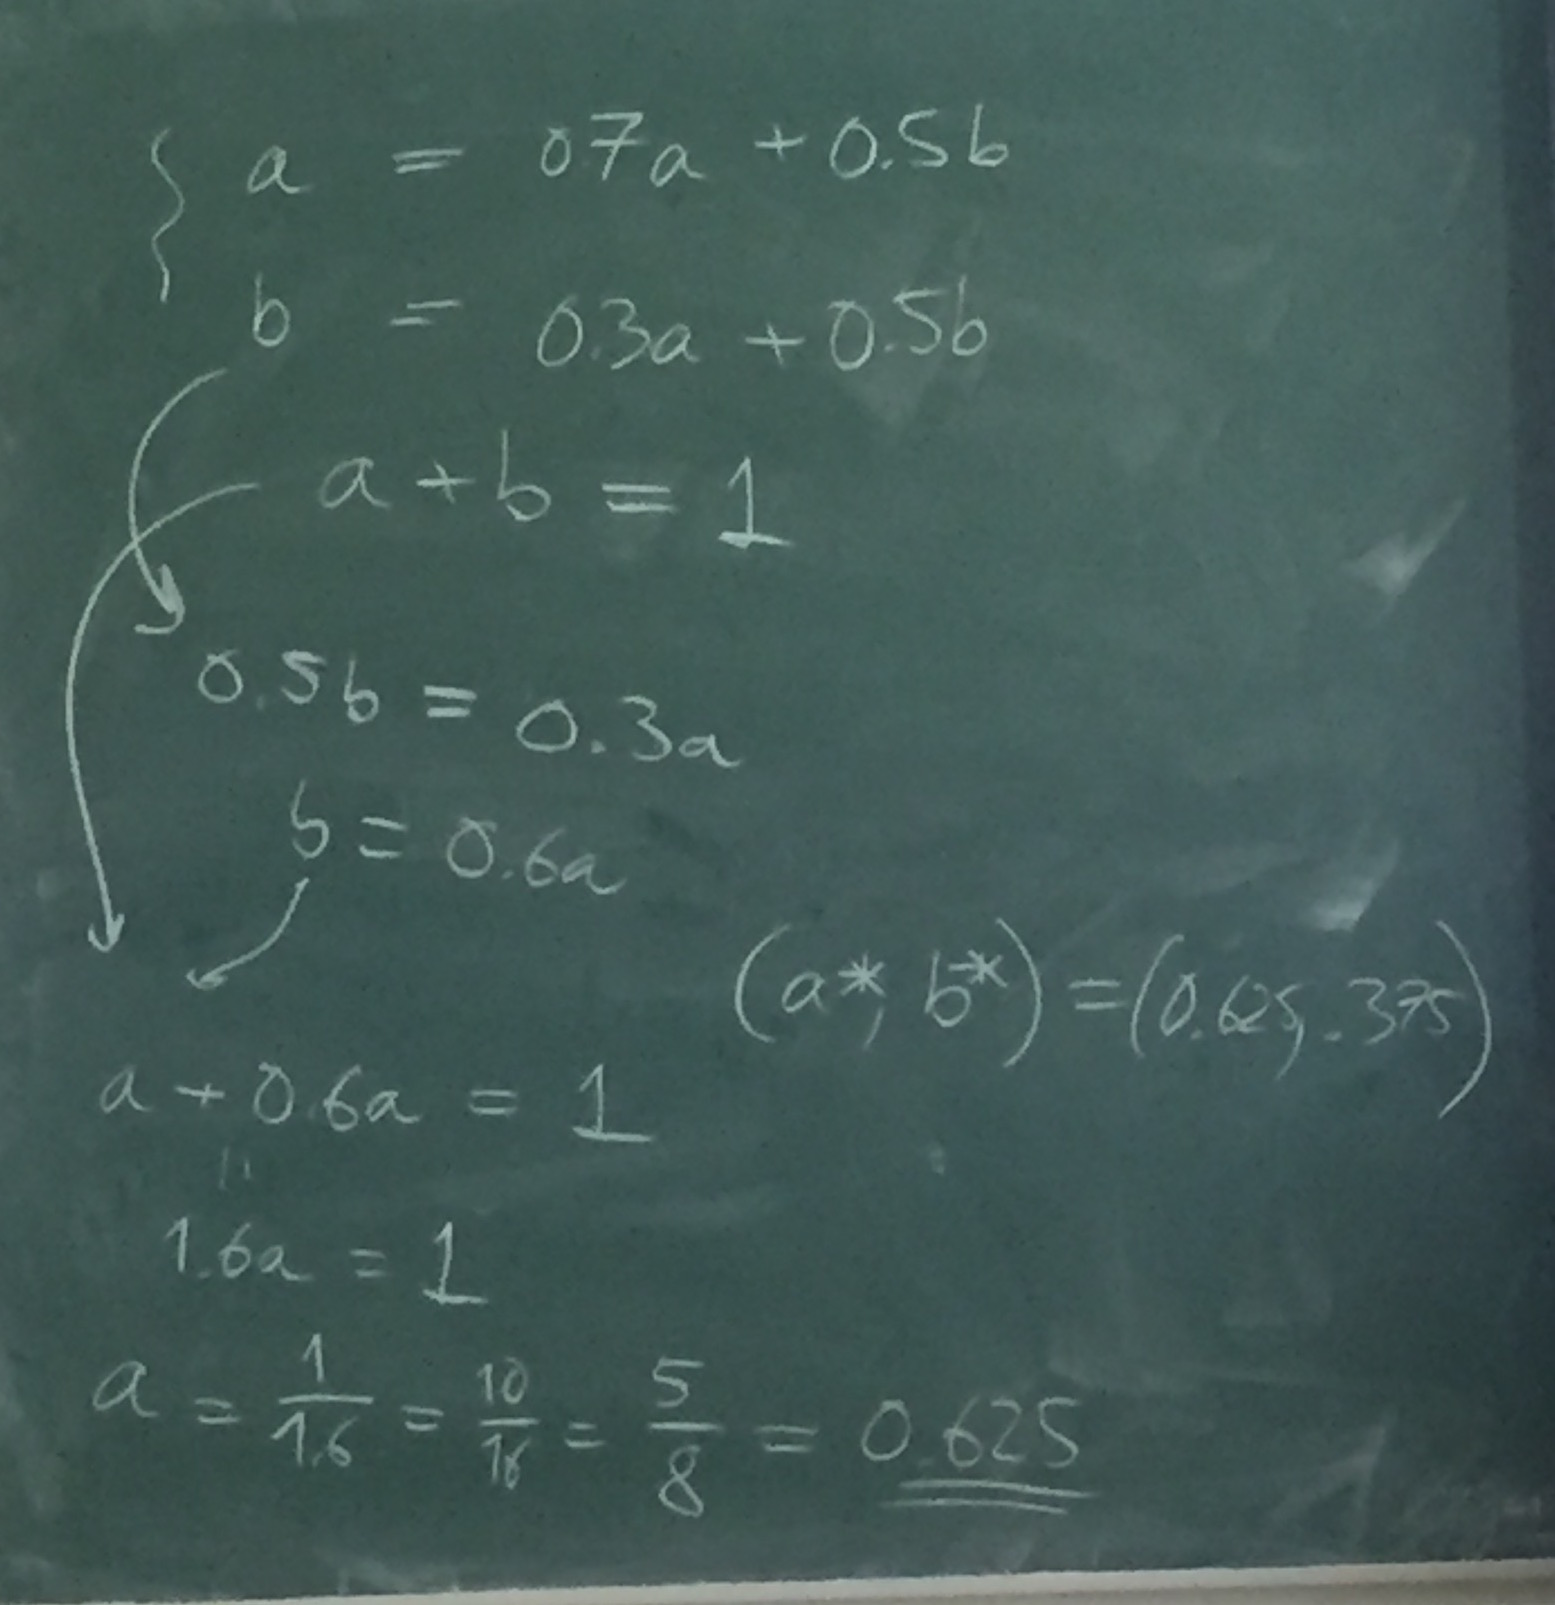 a = 0.7a + 0.5b
b = 0.3a + 0.5b
a + b = 1
0.5b = 0.3a
b = 0.6a
(a*, b*) = (0.625, .375)
a + 0.6a = 1
||
1.6a = 1
a = 1/1.6 = 10/16 = 5/8 = 0.625